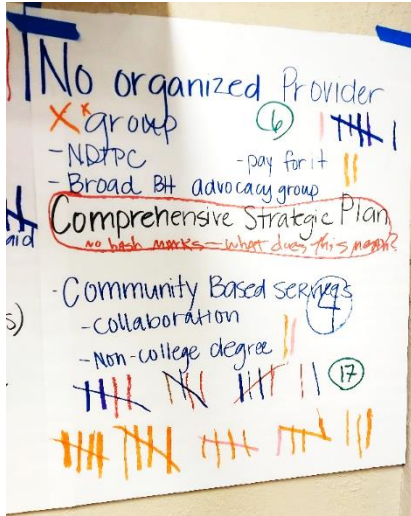 No organized Provider
X x group 6
- NDTPC - pay for it
- Broad BH advocacy group
Comprehensive Strategic Plan
no hash marks - what does this mean?
- Community Based services
4
- collaboration
- Non-college degree
17
aid
s)